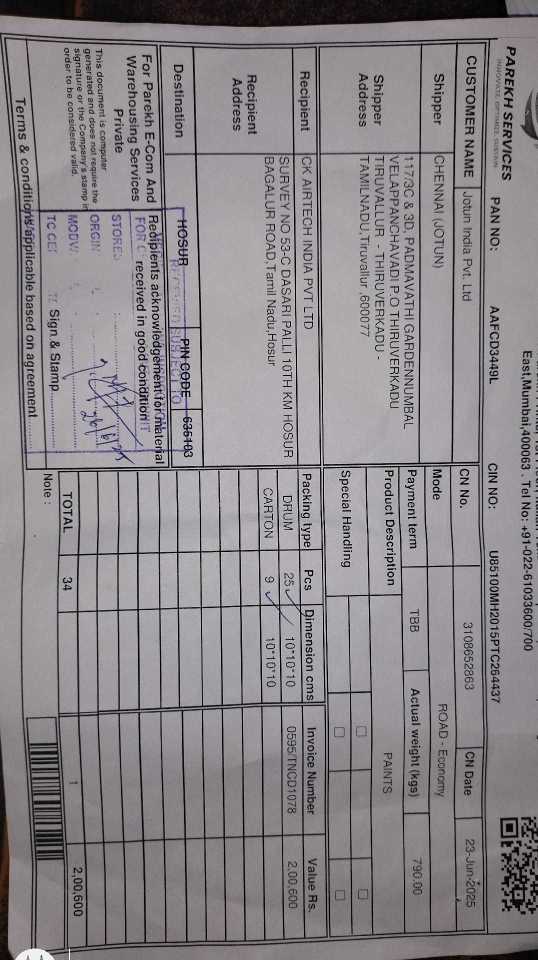 PAREKH SERVICES
INNOVATE, OPTIMIZE, SUSTAIN
East,Mumbai,400063 . Tel No: +91-022-61033600/700
PAN NO: AAFCD3449L CIN NO: U85100MH2015PTC264437
CUSTOMER NAME Jotun India Pvt. Ltd
CN No. 3108652863 CN Date 23-Jun-2025
Shipper CHENNAI (JOTUN)
Mode ROAD - Economy
Shipper Address
117/3C & 3D, PADMAVATHI GARDENNUMBAL
VELAPPANCHAVADI P.O THIRUVERKADU
TIRUVALLUR - THIRUVERKADU -
TAMILNADU,Tiruvallur ,600077
Payment term TBB Actual weight (kgs) 790.00
Product Description PAINTS
Special Handling
Recipient CK AIRTECH INDIA PVT LTD
Recipient Address
SURVEY NO 53-C DASARI PALLI 10TH KM HOSUR
BAGALUR ROAD,Tamil Nadu,Hosur
Packing type Pcs Dimension cms Invoice Number Value Rs.
DRUM 25 10*10*10 0595/TNCD1078 2,00,600
CARTON 9 10*10*10
Destination HOSUR PIN CODE 635103
For Parekh E-Com And
Warehousing Services
Private
This document is computer
generated and does not require the
signature or the Company's stamp in
order to be considered valid.
Recipients acknowledgement for material
received in good condition
RECEIVED SUBJECT TO
STORES
ORGIN
MODV
TC CE
26/6/25
Sign & Stamp
TOTAL 34 1 2,00,600
Terms & conditions applicable based on agreement
Note :